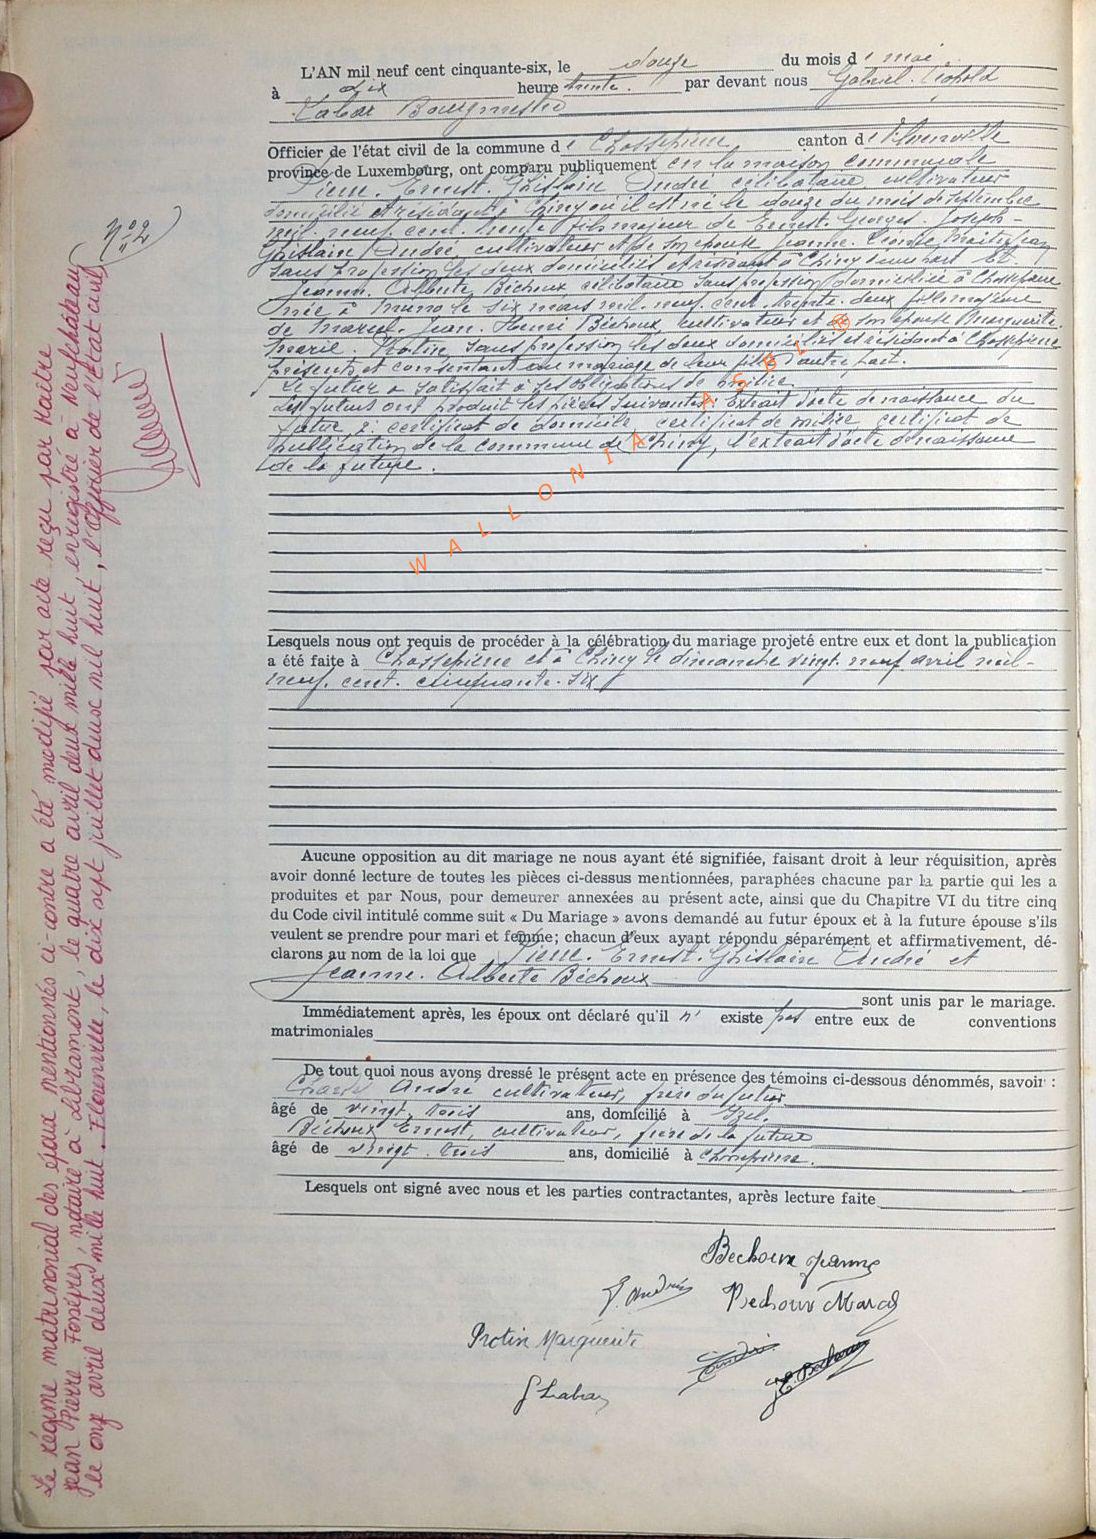 L'AN mil neuf cent cinquante-six, le douze du mois de mai
à dix heure trente. par devant nous Gabriel. Léopold
Labar Bourgmestre
Officier de l'état civil de la commune de Chassepierre canton de Florenville
province de Luxembourg, ont comparu publiquement en la maison communale
Pierre. Ernest. Ghislain André célibataire cultivateur
domicilié et résidant à Chiny où il est né le douze du mois de septembre
mil. neuf. cent. trente fils majeur de Ernest. Georges. Joseph-
Ghislain André cultivateur et de son épouse Jeanne.
sans profession les deux domiciliés et résidant à Chiny d'une part Et
Jeanne. Alberte Béchoux célibataire sans profession domiciliée à Chassepierre
née à Muno le six mars mil. neuf. cent. trente. deux fille majeure
de Marcel. Jean. Henri Béchoux, cultivateur et de son épouse Marguerite.
Marie. Protin, sans profession les deux domiciliés et résidant à Chassepierre
présents et consentant au mariage de leur fille d'autre part.
Le futur a satisfait à ses obligations de milice
Les futurs ont produit les pièces suivantes: Extrait d'acte de naissance du
futur, certificat de domicile, certificat de milice, certificat de
publication de la commune de Chiny, l'extrait d'acte de naissance
de la future.
WALLONIA ASBL ®
Lesquels nous ont requis de procéder à la célébration du mariage projeté entre eux et dont la publication
a été faite à Chassepierre et à Chiny le dimanche vingt. neuf avril mil-
neuf. cent. cinquante. six
Aucune opposition au dit mariage ne nous ayant été signifiée, faisant droit à leur réquisition, après
avoir donné lecture de toutes les pièces ci-dessus mentionnées, paraphées chacune par la partie qui les a
produites et par Nous, pour demeurer annexées au présent acte, ainsi que du Chapitre VI du titre cinq
du Code civil intitulé comme suit « Du Mariage » avons demandé au futur époux et à la future épouse s'ils
veulent se prendre pour mari et femme; chacun d'eux ayant répondu séparément et affirmativement, dé-
clarons au nom de la loi que Pierre. Ernest. Ghislain André et
Jeanne. Alberte Béchoux
sont unis par le mariage.
Immédiatement après, les époux ont déclaré qu'il n' existe pas entre eux de conventions
matrimoniales
De tout quoi nous avons dressé le présent acte en présence des témoins ci-dessous dénommés, savoir :
André cultivateur, frère du futur
âgé de vingt. trois ans, domicilié à Izel
Béchoux Ernest, cultivateur, frère de la future
âgé de vingt. trois ans, domicilié à Chassepierre.
Lesquels ont signé avec nous et les parties contractantes, après lecture faite
Bechoux Jeanne
P. André Bechoux Marcel
Protin Marguerite
André E. Bechoux
G Labar
N° 2
Le régime matrimonial des époux mentionnés ci-contre a été modifié par acte reçu par Maître
Jean Pierre Fosséprez, notaire à Libramont, le quatre avril deux mille huit, enregistré à Neufchâteau
le onze avril deux mille huit. Florenville, le dix sept juillet deux mil huit, l'Officier de l'Etat civil,